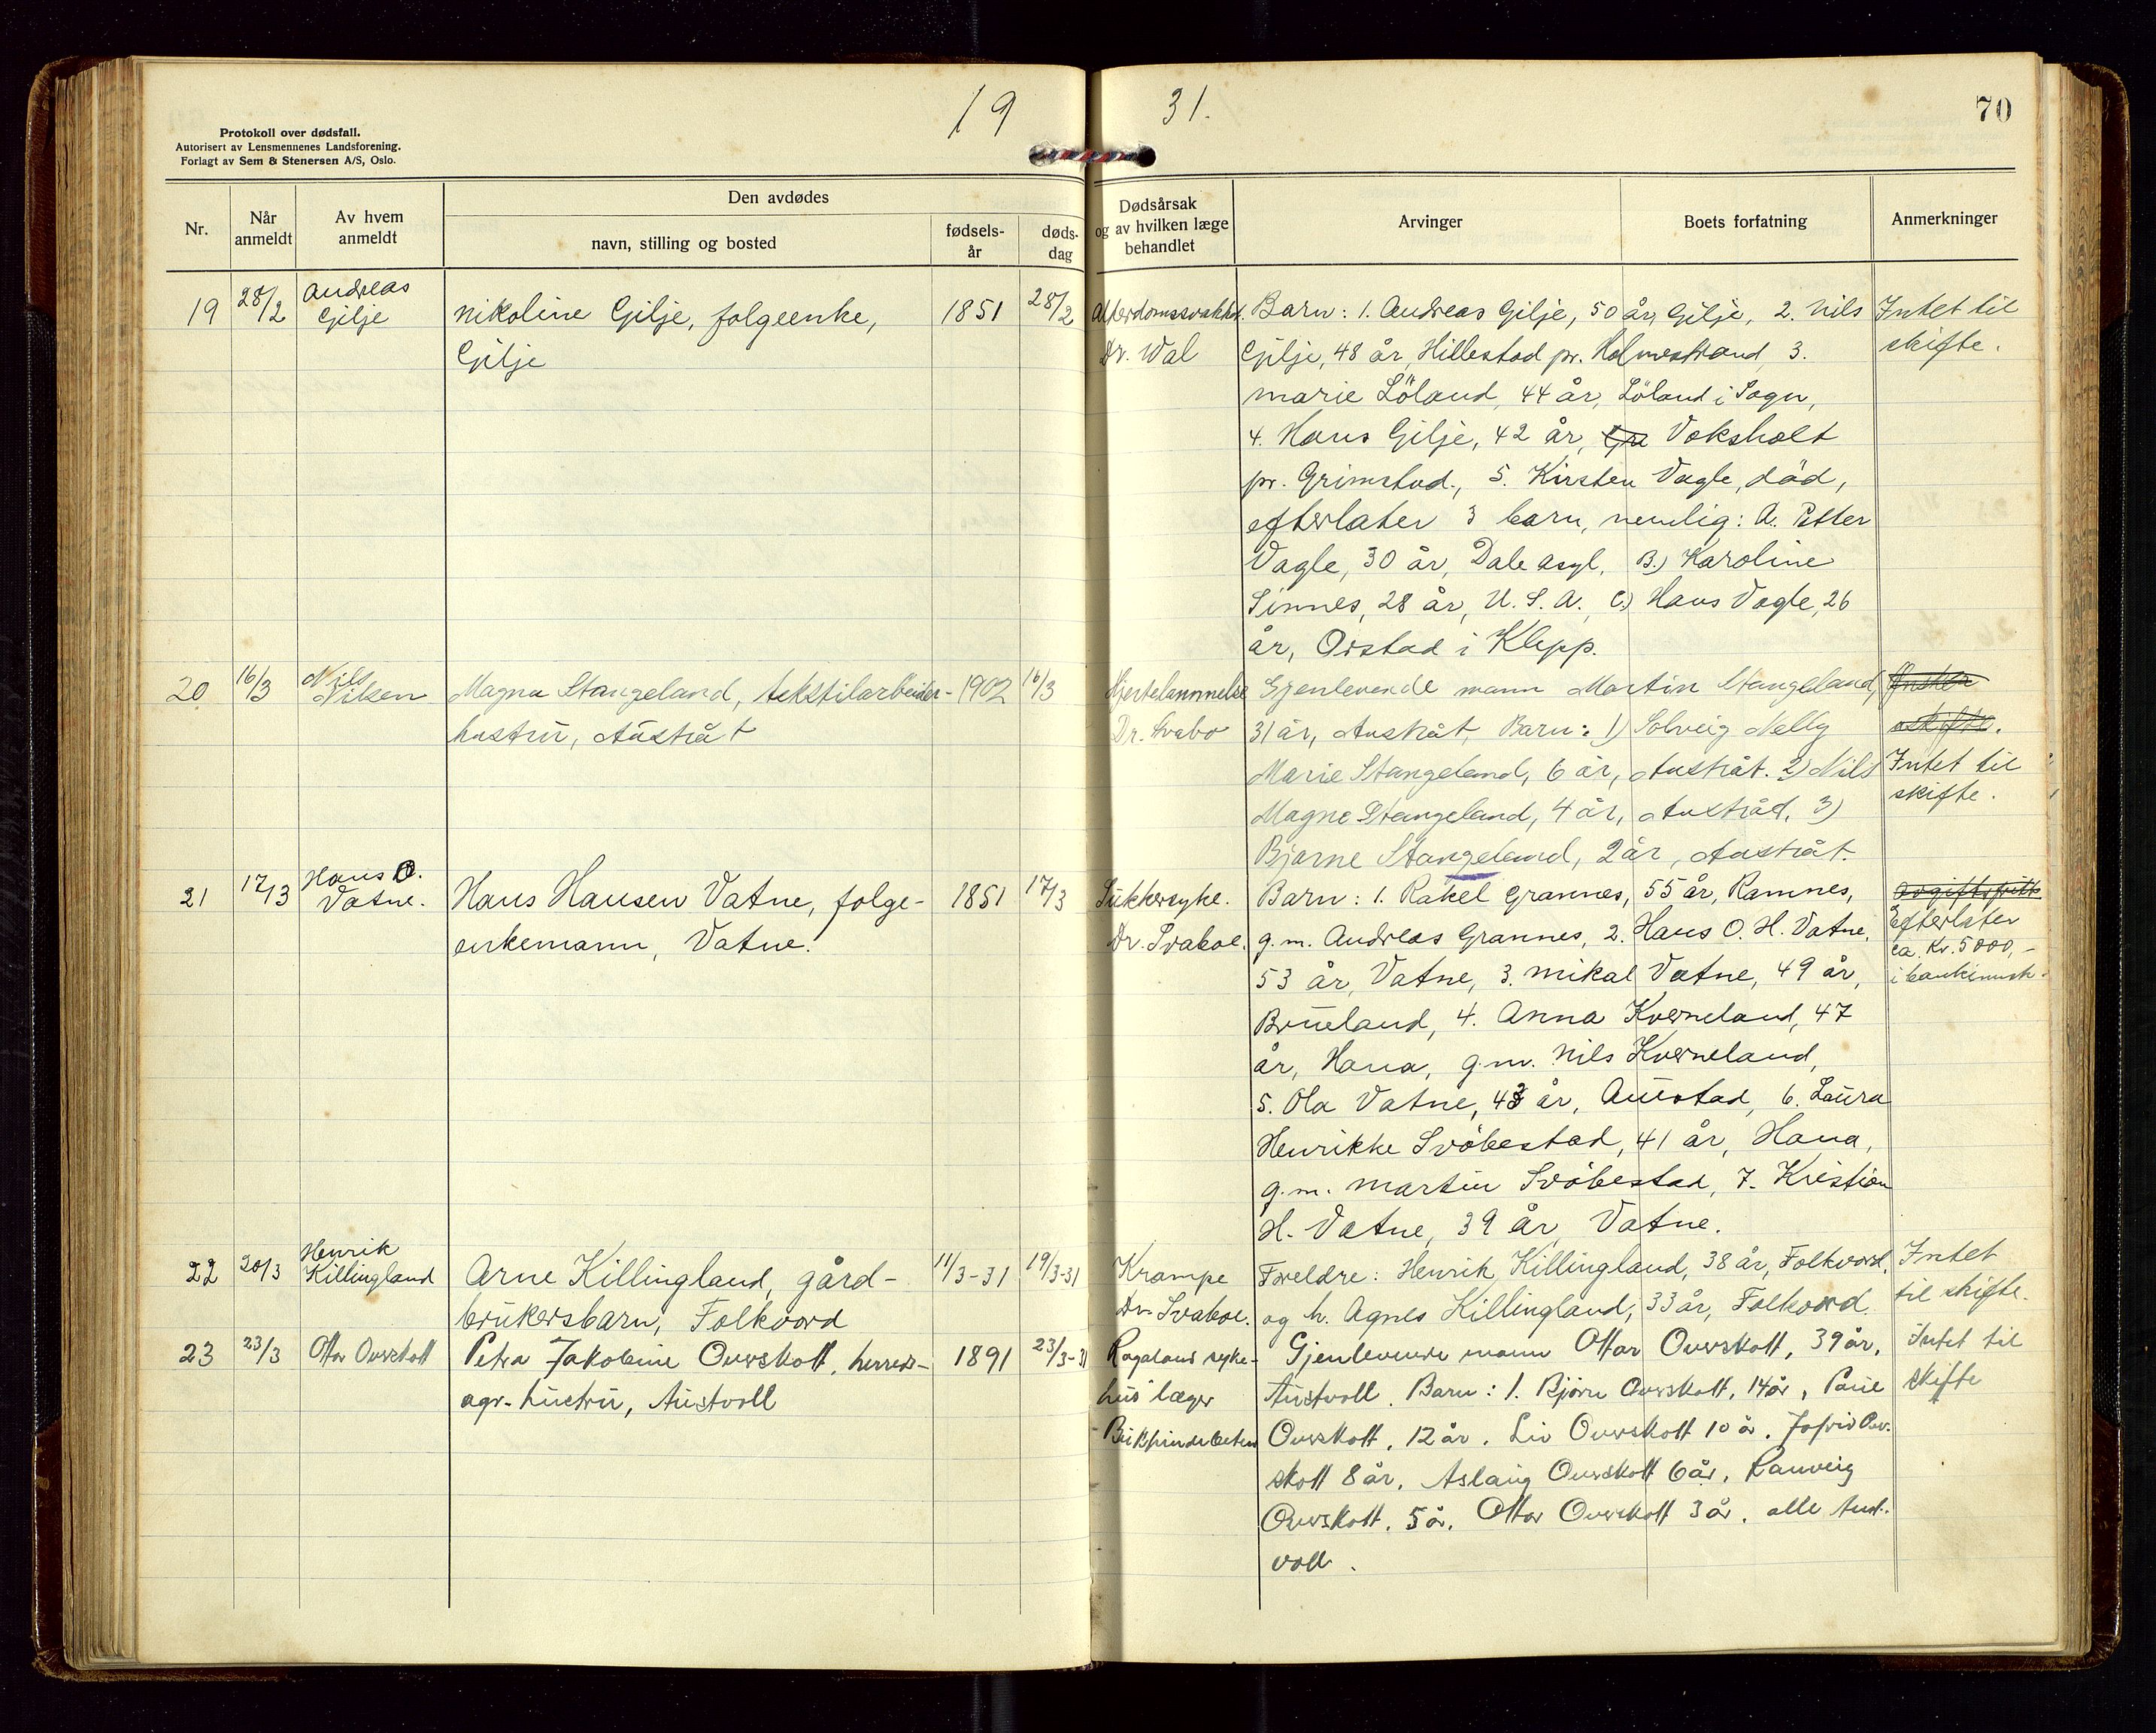 19 31.
70
Protokoll over dødsfall.
Autorisert av Lensmennenes Landsforening.
Forlagt av Sem & Stenersen A/S, Oslo.
Nr.
Når anmeldt
Av hvem anmeldt
Den avdødes
navn, stilling og bosted
fødsels-år
døds-dag
Dødsårsak og av hvilken læge behandlet
Arvinger
Boets forfatning
Anmerkninger
19
28/2
Andreas
Gilje
Nikoline Gilje, folgeenke,
Gilje
1851
28/2
Alderdomssvakhet.
Dr. Wal
Barn: 1. Andreas Gilje, 50 år, Gilje, 2. Nils
Gilje, 48 år, Hillestad pr. Holmestrand, 3.
Marie Löland, 44 år, Löland i Sogn,
4. Hans Gilje, 42 år, Voksholt
pr. Grimstad., 5. Kirsten Vagle, död,
efterlater 3 barn, nemlig: A. Petter
Vagle, 30 år, Dale asyl, B.) Karoline
Sinnes, 28 år, U. S. A., C.) Hans Vagle, 26
år, Orstad i Klepp.
Intet til
skifte.
20
16/3
Nils
Nilsen
Magna Stangeland, tekstilarbeider-
hustru, Austråt
1902
16/3
Hjertelammelse
Dr. Svabo
Gjenlevende mann Martin Stangeland,
31 år, Austråt, Barn: 1) Solveig Nelly
Marie Stangeland, 6 år, Austråt. 2) Nils
Magne Stangeland, 4 år, Austråt, 3)
Bjarne Stangeland, 2 år, Austråt.
Ønsker
skifte.
Intet til
skifte.
21
17/3
Hans O.
Vatne.
Hans Hansen Vatne, folge-
enkemann, Vatne.
1851
17/3
Sukkersyke.
Dr. Svaboe.
Barn: 1. Rakel Grannes, 55 år, Ramnes,
g.m. Andreas Grannes, 2. Hans O. H. Vatne,
53 år, Vatne, 3. Mikal Vatne, 49 år,
Brueland, 4. Anna Kverneland, 47
år, Hana, g.m. Nils Kverneland,
5. Ola Vatne, 43 år, Auestad, 6. Laura
Henrikke Svöbestad, 41 år, Hana,
g.m. Martin Svöbestad, 7. Kristian
H. Vatne, 39 år, Vatne.
avgiftsfritt
Efterlater
ca. kr. 5000,-
i bankinnsk.
22
20/3
Henrik
Killingland
Arne Killingland, gård-
brukersbarn, Folkvord
11/3-31
19/3-31
Krampe
Dr. Svaboe.
Foreldre: Henrik Killingland, 38 år, Folkvord,
og h. Agnes Killingland, 33 år, Folkvord.
Intet
til skifte.
23
23/3
Ottar Ourskott
Petra Jakobine Ourskott, herreds-
agr. hustru, Austvoll
1891
23/3-31
Rogaland syke-
hus læger
Gjenlevende mann Ottar Ourskott, 39 år,
Austvoll. Barn: 1. Bjørn Ourskott, 14 år,
Ourskott, 12 år. Liv Ourskott 10 år.
skott 8 år. Aslaug Ourskott 6 år. Ranveig
Ourskott. 5 år. Ottar Ourskott 3 år. alle Aust-
voll.
Intet til
skifte